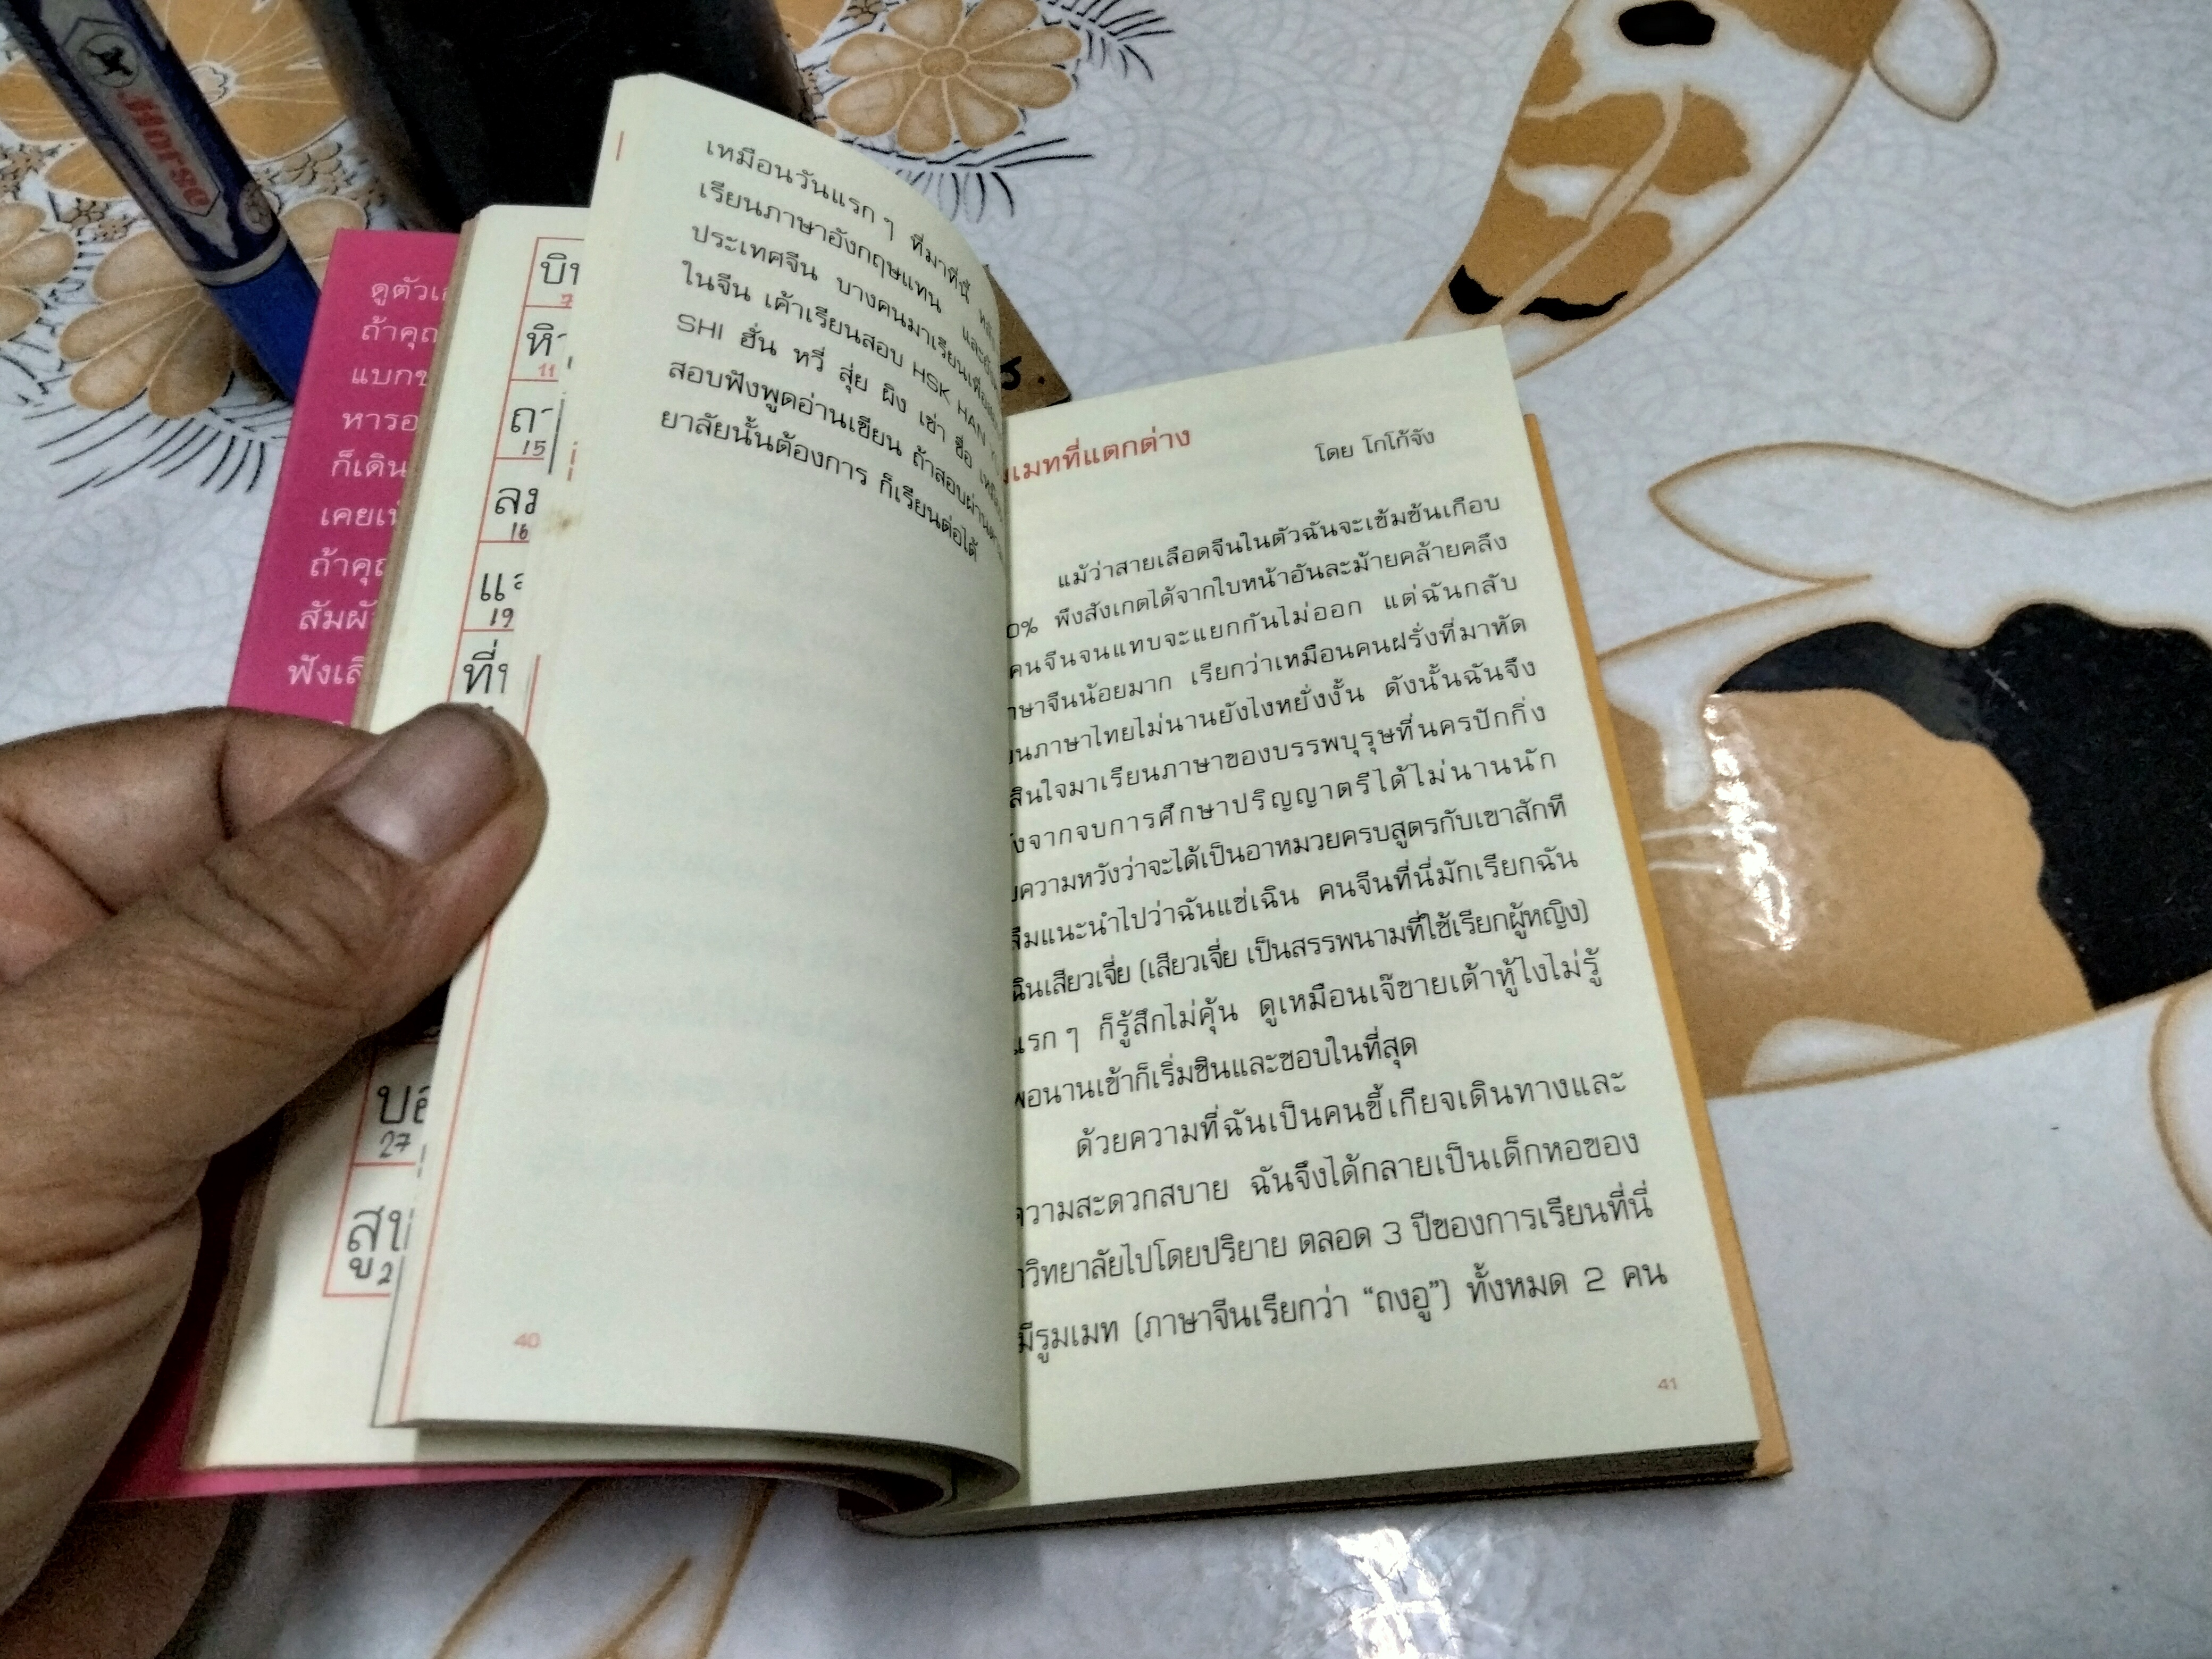 Horse
ดูตัวเ
ถ้าคุณ
แบกข
หารอ
ก็เดิน
เคยเ
ถ้าคุณ
สัมผั
ฟังเสี
บิน
7
หิ
11
ถ
15
ลม
16
แล
19
ที่
บอ
27
สูบ
2
เหมือนวันแรก ๆ ที่มาที่นี่
เรียนภาษาอังกฤษแทน และ
ประเทศจีน บางคนมาเรียนเพื่อ
ในจีน เค้าเรียนสอบ HSK HAN YU
SHI ฮั่น หวี่ สุ่ย ผิง เช่า ชื่อ เหมือน
สอบฟังพูดอ่านเขียน ถ้าสอบผ่าน
ยาลัยนั้นต้องการ ก็เรียนต่อได้
40
มเมทที่แตกต่าง
โดย โกโก้จัง
แม้ว่าสายเลือดจีนในตัวฉันจะเข้มข้นเกือบ
0% พึงสังเกตได้จากใบหน้าอันละม้ายคล้ายคลึง
คนจีนจนแทบจะแยกกันไม่ออก แต่ฉันกลับ
าษาจีนน้อยมาก เรียกว่าเหมือนคนฝรั่งที่มาหัด
ยนภาษาไทยไม่นานยังไงหยั่งงั้น ดังนั้นฉันจึง
สินใจมาเรียนภาษาของบรรพบุรุษที่นครปักกิ่ง
ังจากจบการศึกษาปริญญาตรีได้ไม่นานนัก
ยความหวังว่าจะได้เป็นอาหมวยครบสูตรกับเขาสักที
ลืมแนะนำไปว่าฉันแซ่เฉิน คนจีนที่นี่มักเรียกฉัน
ฉินเสียวเจี่ย (เสียวเจี่ย เป็นสรรพนามที่ใช้เรียกผู้หญิง)
แรก ๆ ก็รู้สึกไม่คุ้น ดูเหมือนเจ๊ขายเต้าหู้ไงไม่รู้
พอนานเข้าก็เริ่มชินและชอบในที่สุด
ด้วยความที่ฉันเป็นคนขี้เกียจเดินทางและ
ความสะดวกสบาย ฉันจึงได้กลายเป็นเด็กหอของ
าวิทยาลัยไปโดยปริยาย ตลอด 3 ปีของการเรียนที่นี่
มีรูมเมท (ภาษาจีนเรียกว่า “ถงอู”) ทั้งหมด 2 คน
41